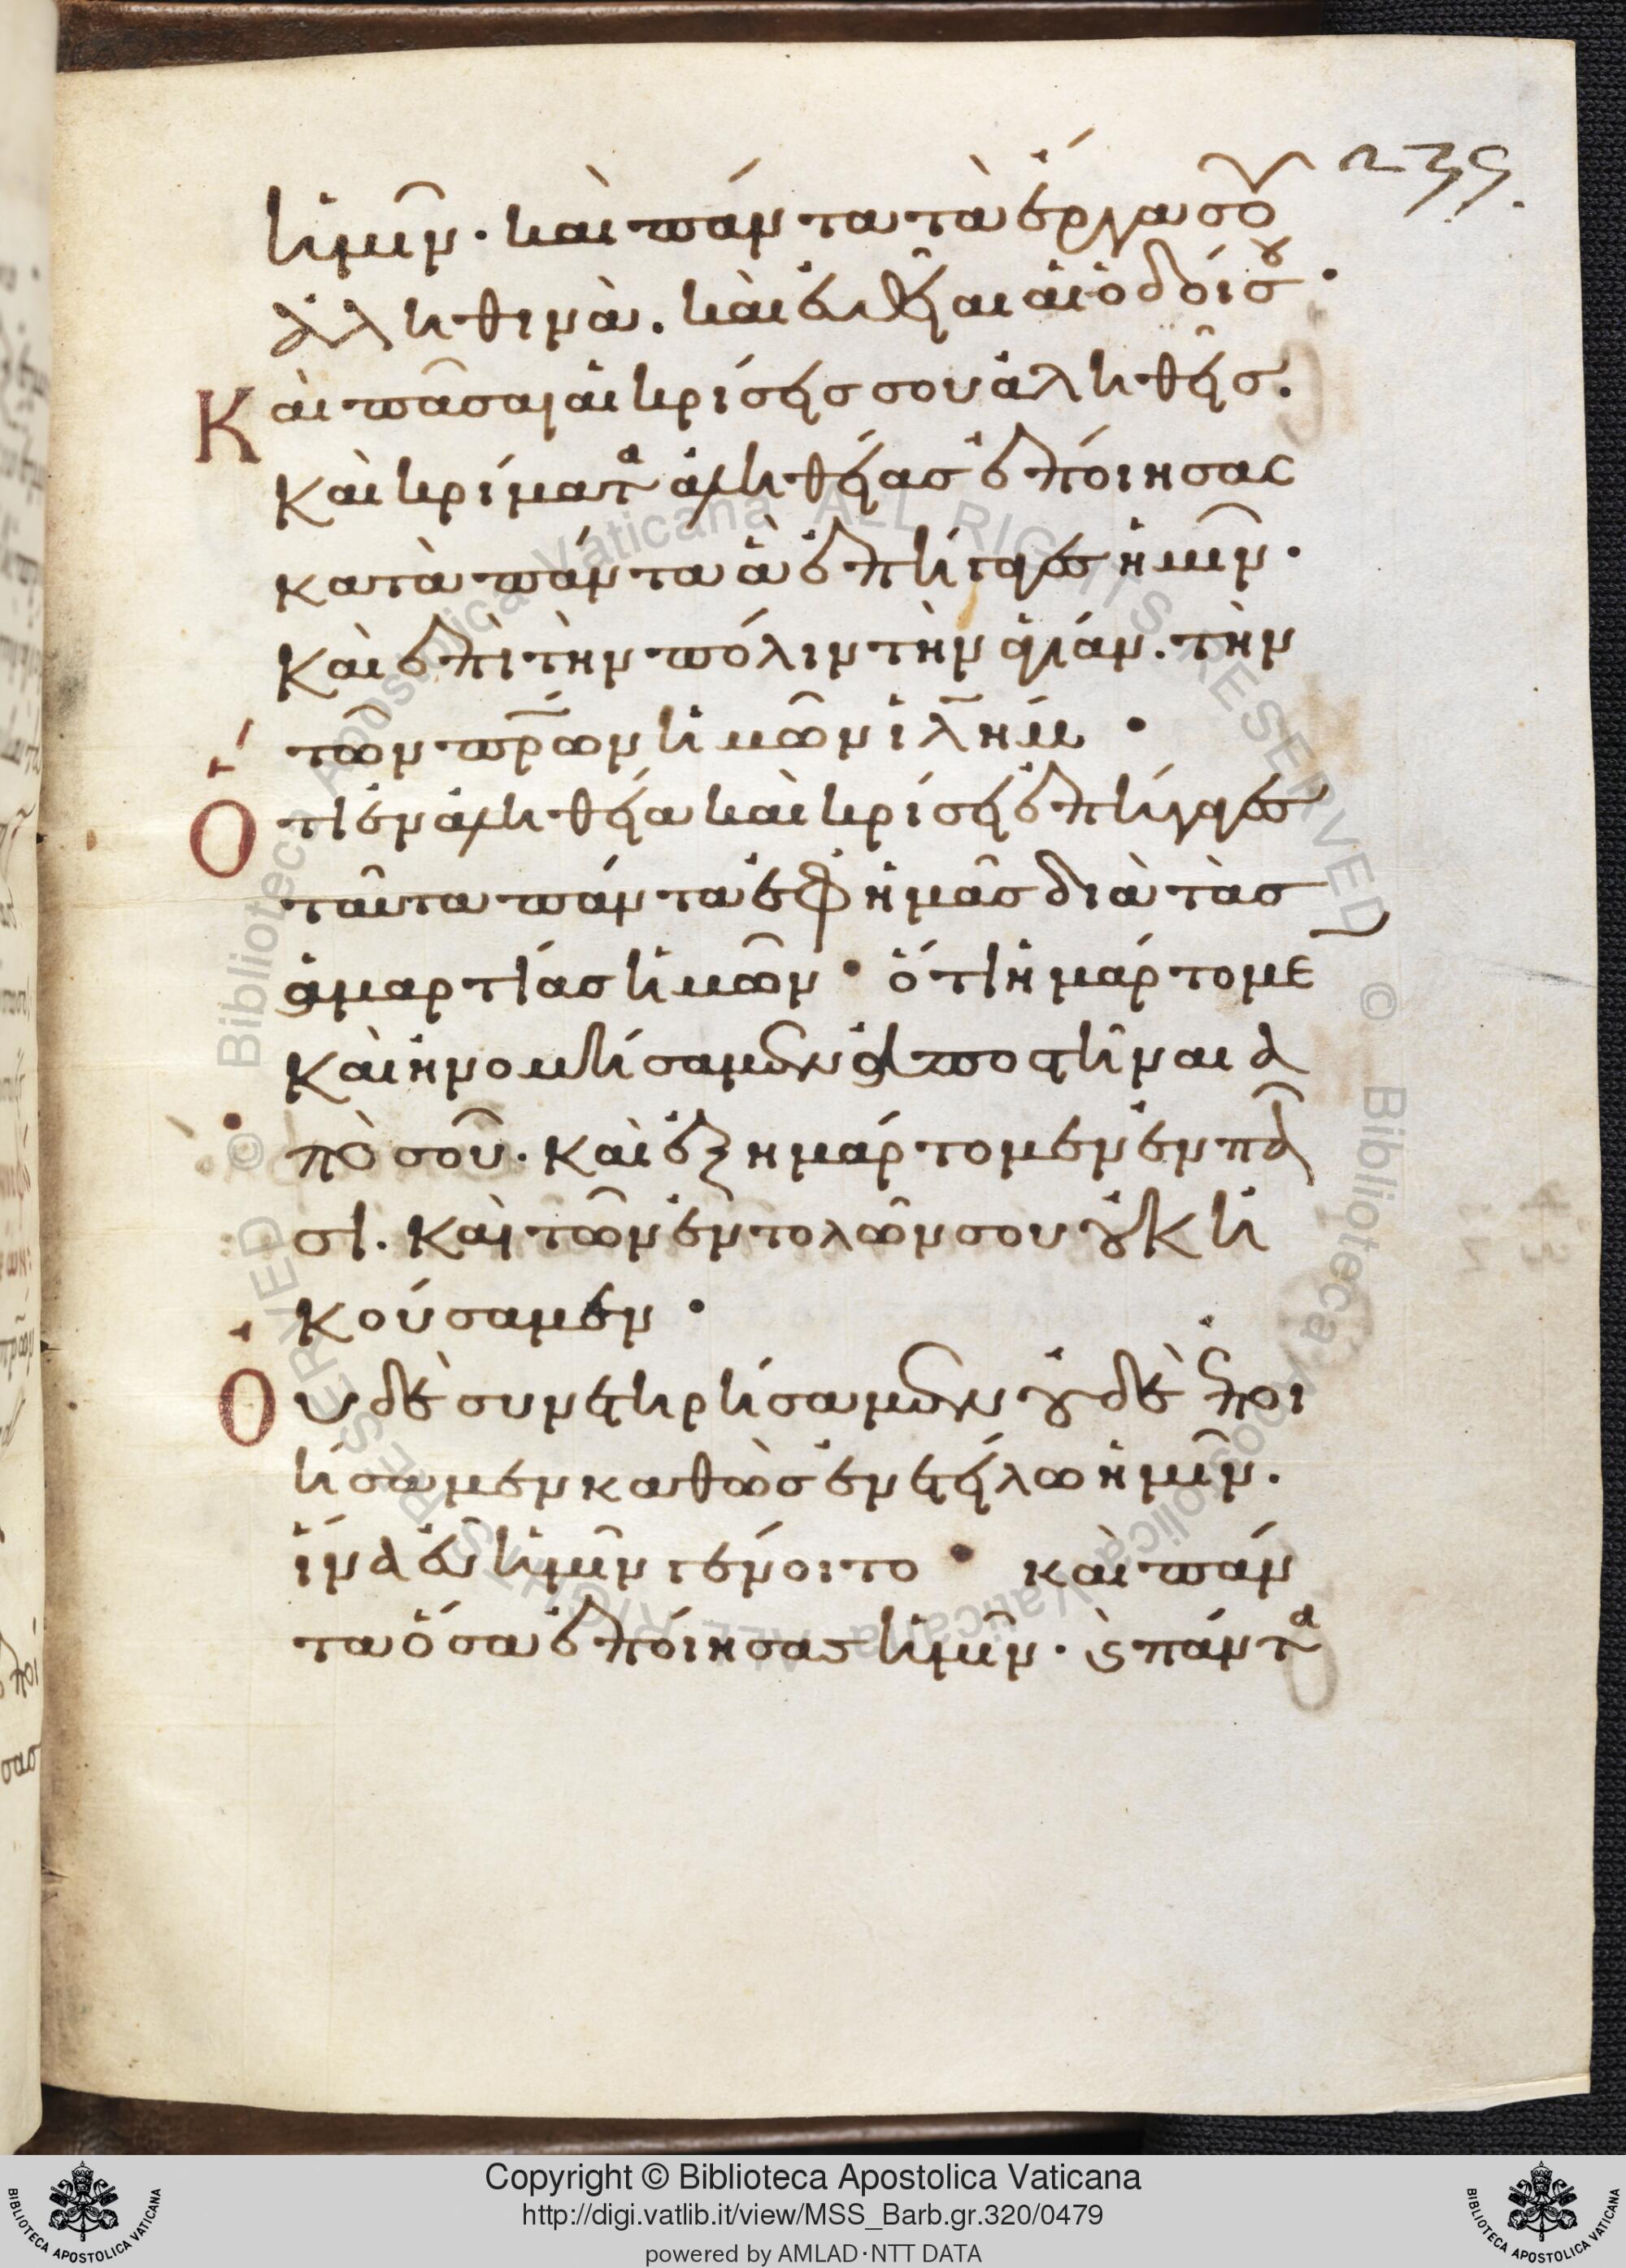 239.
ἡμῖν· καὶ πάντα τὰ ἔργα σου
ἀληθινὰ. καὶ εὐθεῖαι αἱ ὁδοί σου·
Καὶ πᾶσαι αἱ κρίσεις σου ἀληθεῖς.
καὶ κρίματα ἀληθείας ἐποίησας
κατὰ πάντα ἃ ἐπήγαγες ἡμῖν·
καὶ ἐπὶ τὴν πόλιν τὴν ἁγίαν. τὴν
τῶν πρ̅ων ἡμῶν ἱλ̅ημ·
Ὅτι ἐν ἀληθεία καὶ κρίσει ἐπήγαγες
ταῦτα πάντα ἐφ ἡμᾶς διὰ τὰς
ἁμαρτίας ἡμῶν· ὅτι ἡμάρτομε̅
καὶ ἠνομήσαμεν ἀποστῆναι ἀ
πὸ σοῦ· καὶ ἐξημάρτομεν ἐν πᾶ
σι. καὶ τῶν ἐντολῶν σου οὐκ ἠ
κούσαμεν·
Οὐδὲ συνετηρήσαμεν οὐδὲ ἐποι
ήσαμεν καθὼς ἐνετείλω ἡμῖν.
ἵνα εὖ ἡμῖν γένοιτο· καὶ πάν
τα ὅσα ἐποίησας ἡμῖν· ϗ πάντα
Copyright © Biblioteca Apostolica Vaticana
http://digi.vatlib.it/view/MSS_Barb.gr.320/0479
powered by AMLAD·NTT DATA
BIBLIOTECA APOSTOLICA VATICANA
BIBLIOTECA APOSTOLICA VATICANA
© Biblioteca Apostolica Vaticana ALL RIGHTS RESERVED
© Biblioteca Apostolica Vaticana ALL RIGHTS RESERVED